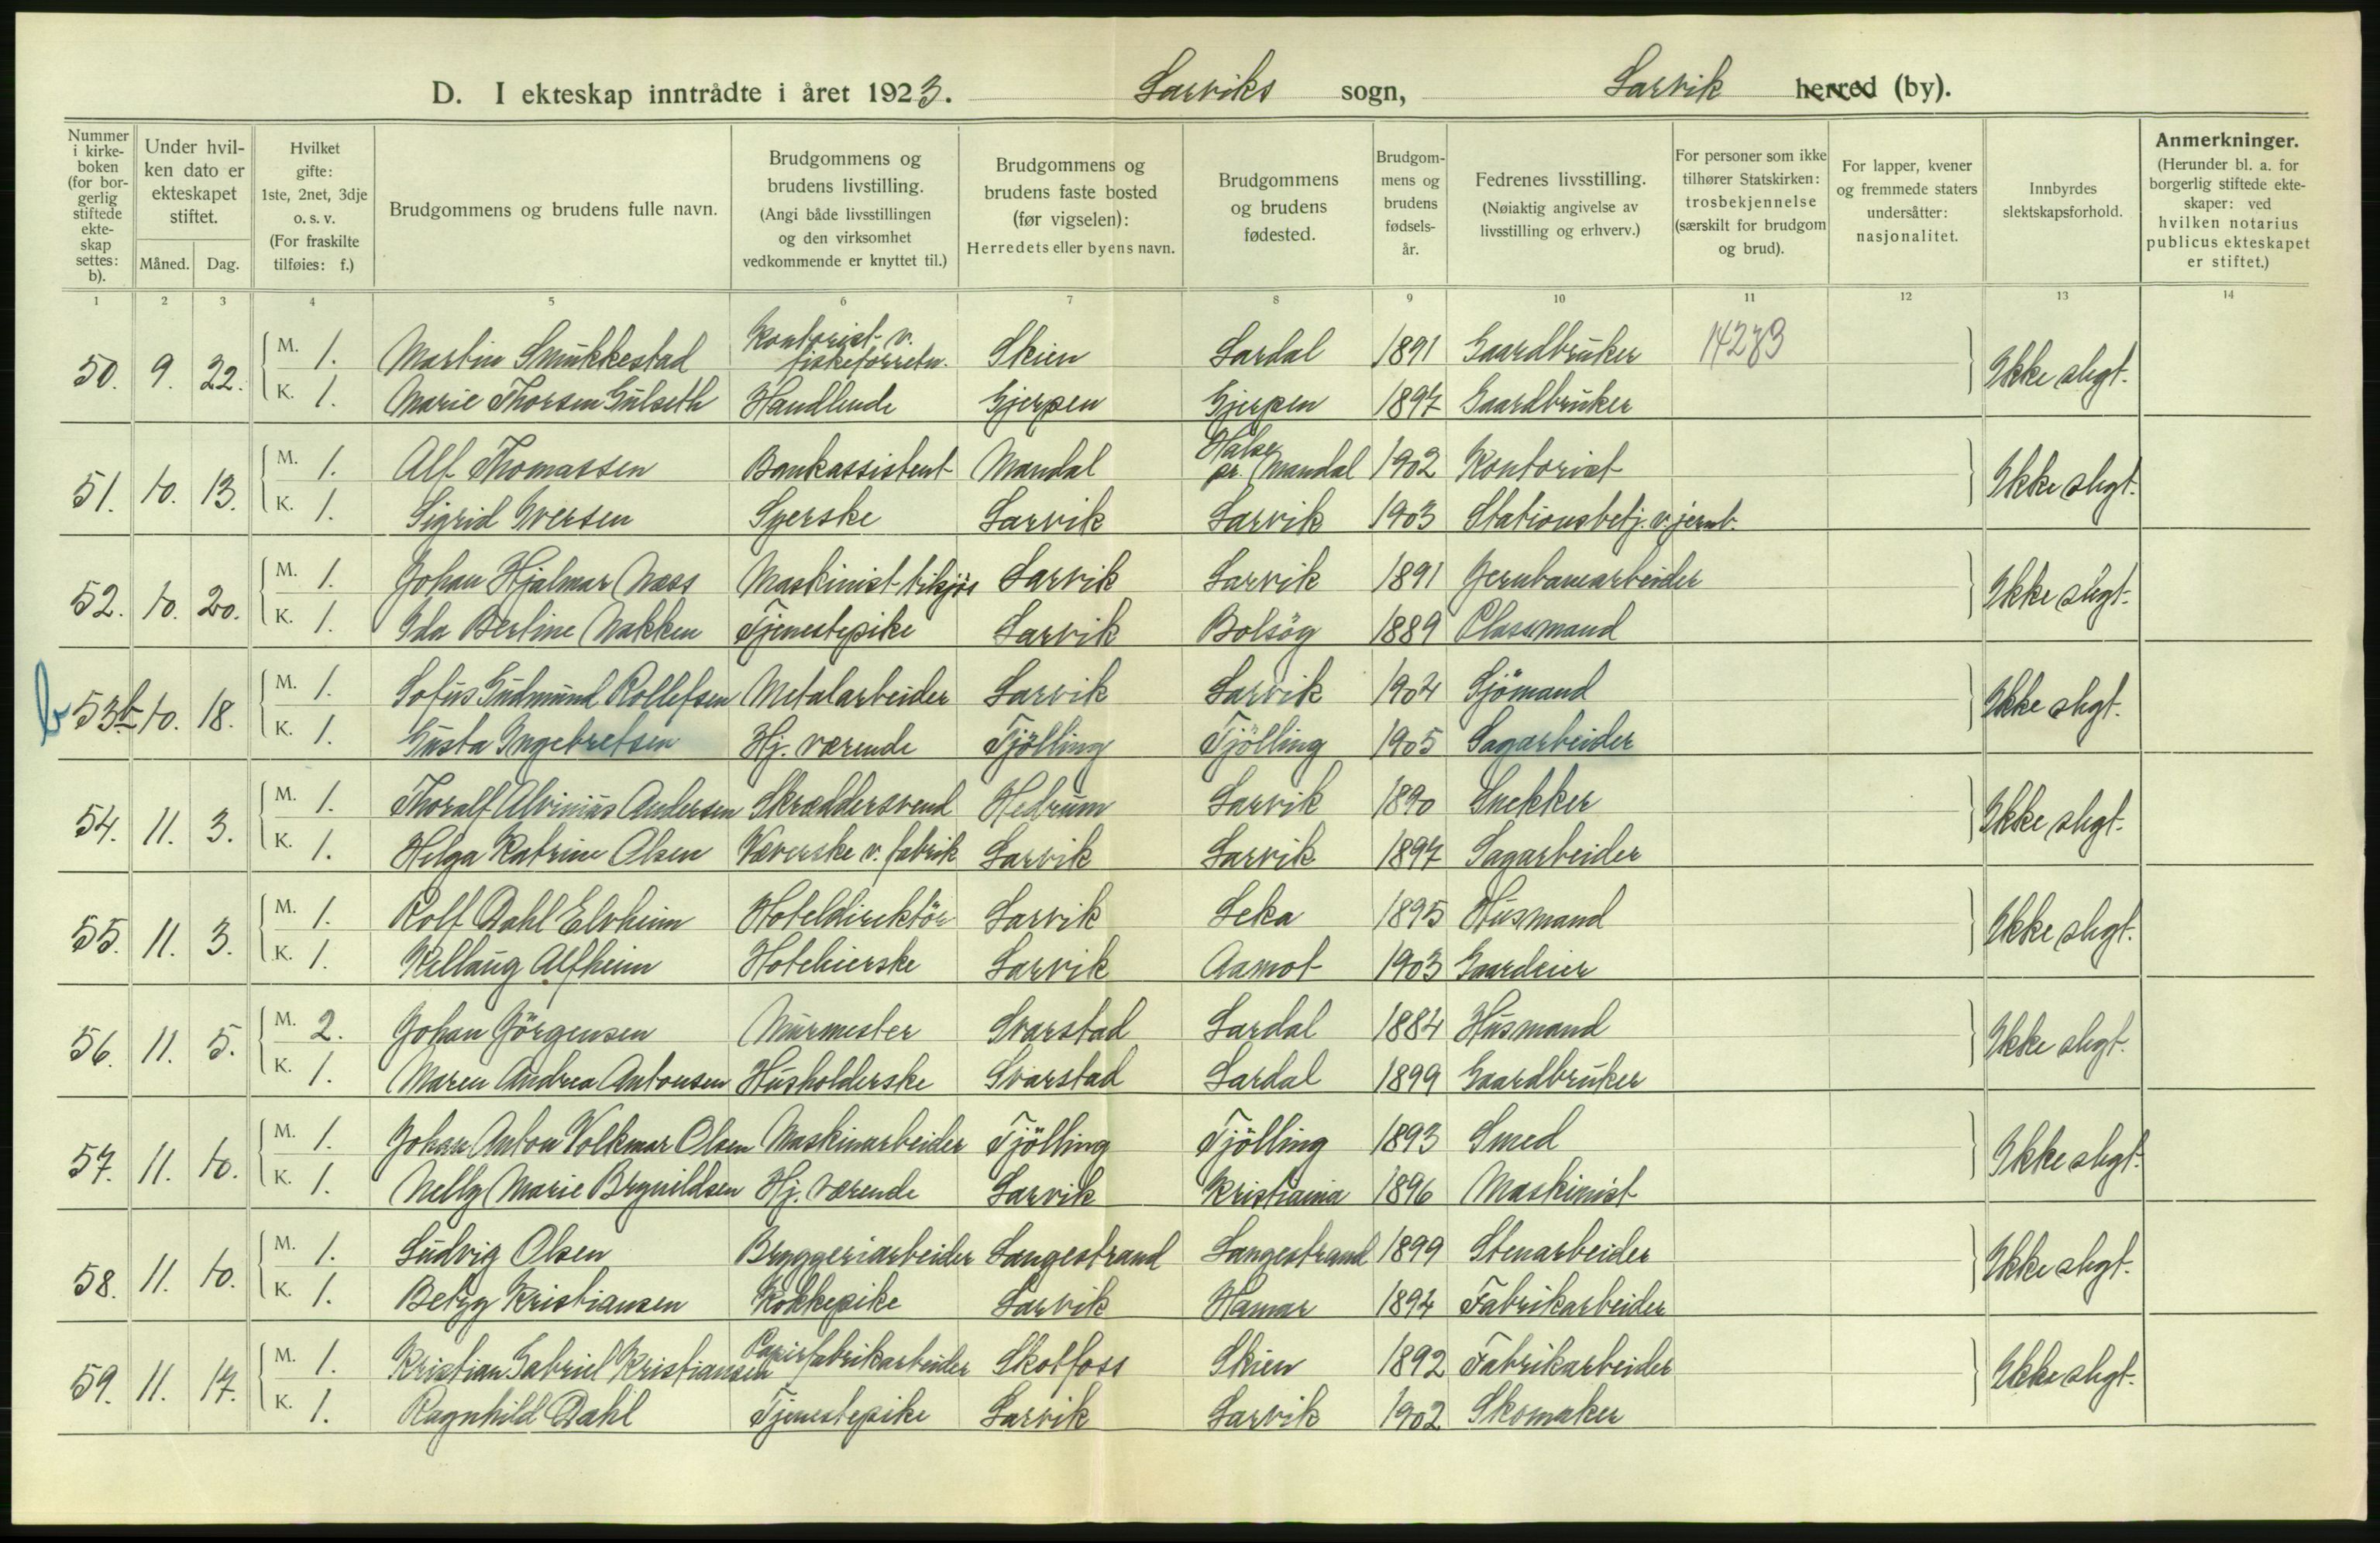 D. I ekteskap inntrådte i året 1923. Larviks sogn, Larvik herred (by).
Nummer i kirkeboken (for borgerlig stiftede ekteskap settes: b).
Under hvilken dato er ekteskapet stiftet.
Måned. Dag.
Hvilket gifte: 1ste, 2net, 3dje o. s. v. (For fraskilte tilføies: f.)
Brudgommens og brudens fulle navn.
Brudgommens og brudens livstilling. (Angi både livsstillingen og den virksomhet vedkommende er knyttet til.)
Brudgommens og brudens faste bosted (før vigselen): Herredets eller byens navn.
Brudgommens og brudens fødested.
Brudgommens og brudens fødselsår.
Fedrenes livsstilling. (Nøiaktig angivelse av livsstilling og erhverv.)
For personer som ikke tilhører Statskirken: trosbekjennelse (særskilt for brudgom og brud).
For lapper, kvener og fremmede staters undersåtter: nasjonalitet.
Innbyrdes slektskapsforhold.
Anmerkninger. (Herunder bl. a. for borgerlig stiftede ekteskaper: ved hvilken notarius publicus ekteskapet er stiftet.)
1 2 3 4 5 6 7 8 9 10 11 12 13 14
50. 9. 22. M. 1. Martin Smukkestad Kontorist v. fiskeforretn. Skien Lardal 1891 Gaardbruker Ikke slegt.
K. 1. Marie Thorsen Gulseth Handlende Gjerpen Gjerpen 1897 Gaardbruker
51. 10. 13. M. 1. Alf Thomassen Bankassistent Mandal Halse pr. Mandal 1902 Kontorist Ikke slegt.
K. 1. Sigrid Iversen Syerske Larvik Larvik 1903 Stationsbetj. v. jernb.
52. 10. 20. M. 1. Johan Hjalmar Næss Maskinist tilsjøs Larvik Larvik 1891 Jernbanearbeider Ikke slegt.
K. 1. Ida Berline Nakken Tjenestepike Larvik Bolsög 1889 Plassmand
b 53b 10. 18. M. 1. Sofus Gudmund Rollefsen Metalarbeider Larvik Larvik 1904 Sjömand Ikke slegt.
K. 1. Gusta Ingebretsen Hj. værende Tjölling Tjölling 1905 Sagarbeider
54. 11. 3. M. 1. Thoralf Alvinius Andersen Skræddersvend Hedrum Larvik 1890 Snekker Ikke slegt.
K. 1. Helga Katrine Olsen Væverske v. fabrik Larvik Larvik 1897 Sagarbeider
55. 11. 3. M. 1. Rolf Dahl Elvheim Hoteldirektör Larvik Leka 1895 Husmand Ikke slegt.
K. 1. Kellaug Alfheim Hoteleierske Larvik Aamot 1903 Gaardeier
56. 11. 5. M. 2. Johan Jörgensen Murmester Svarstad Lardal 1884 Husmand Ikke slegt.
K. 1. Maren Andrea Antonsen Husholderske Svarstad Lardal 1899 Gaardbruker
57. 11. 10. M. 1. Johan Anton Volkmar Olsen Maskinarbeider Tjölling Tjölling 1893 Smed Ikke slegt.
K. 1. Nelly Marie Brynildsen Hj. værende Larvik Kristiania 1896 Maskinist
58. 11. 10. M. 1. Ludvig Olsen Bryggeriarbeider Langestrand Langestrand 1899 Stenarbeider Ikke slegt.
K. 1. Betzy Kristiansen Kokkepike Larvik Hamar 1894 Fabrikarbeider
59. 11. 17. M. 1. Kristian Gabriel Kristiansen Papirfabrikarbeider Skotfoss Skien 1892 Fabrikarbeider Ikke slegt.
K. 1. Ragnhild Dahl Tjenestepike Larvik Larvik 1902 Skomaker